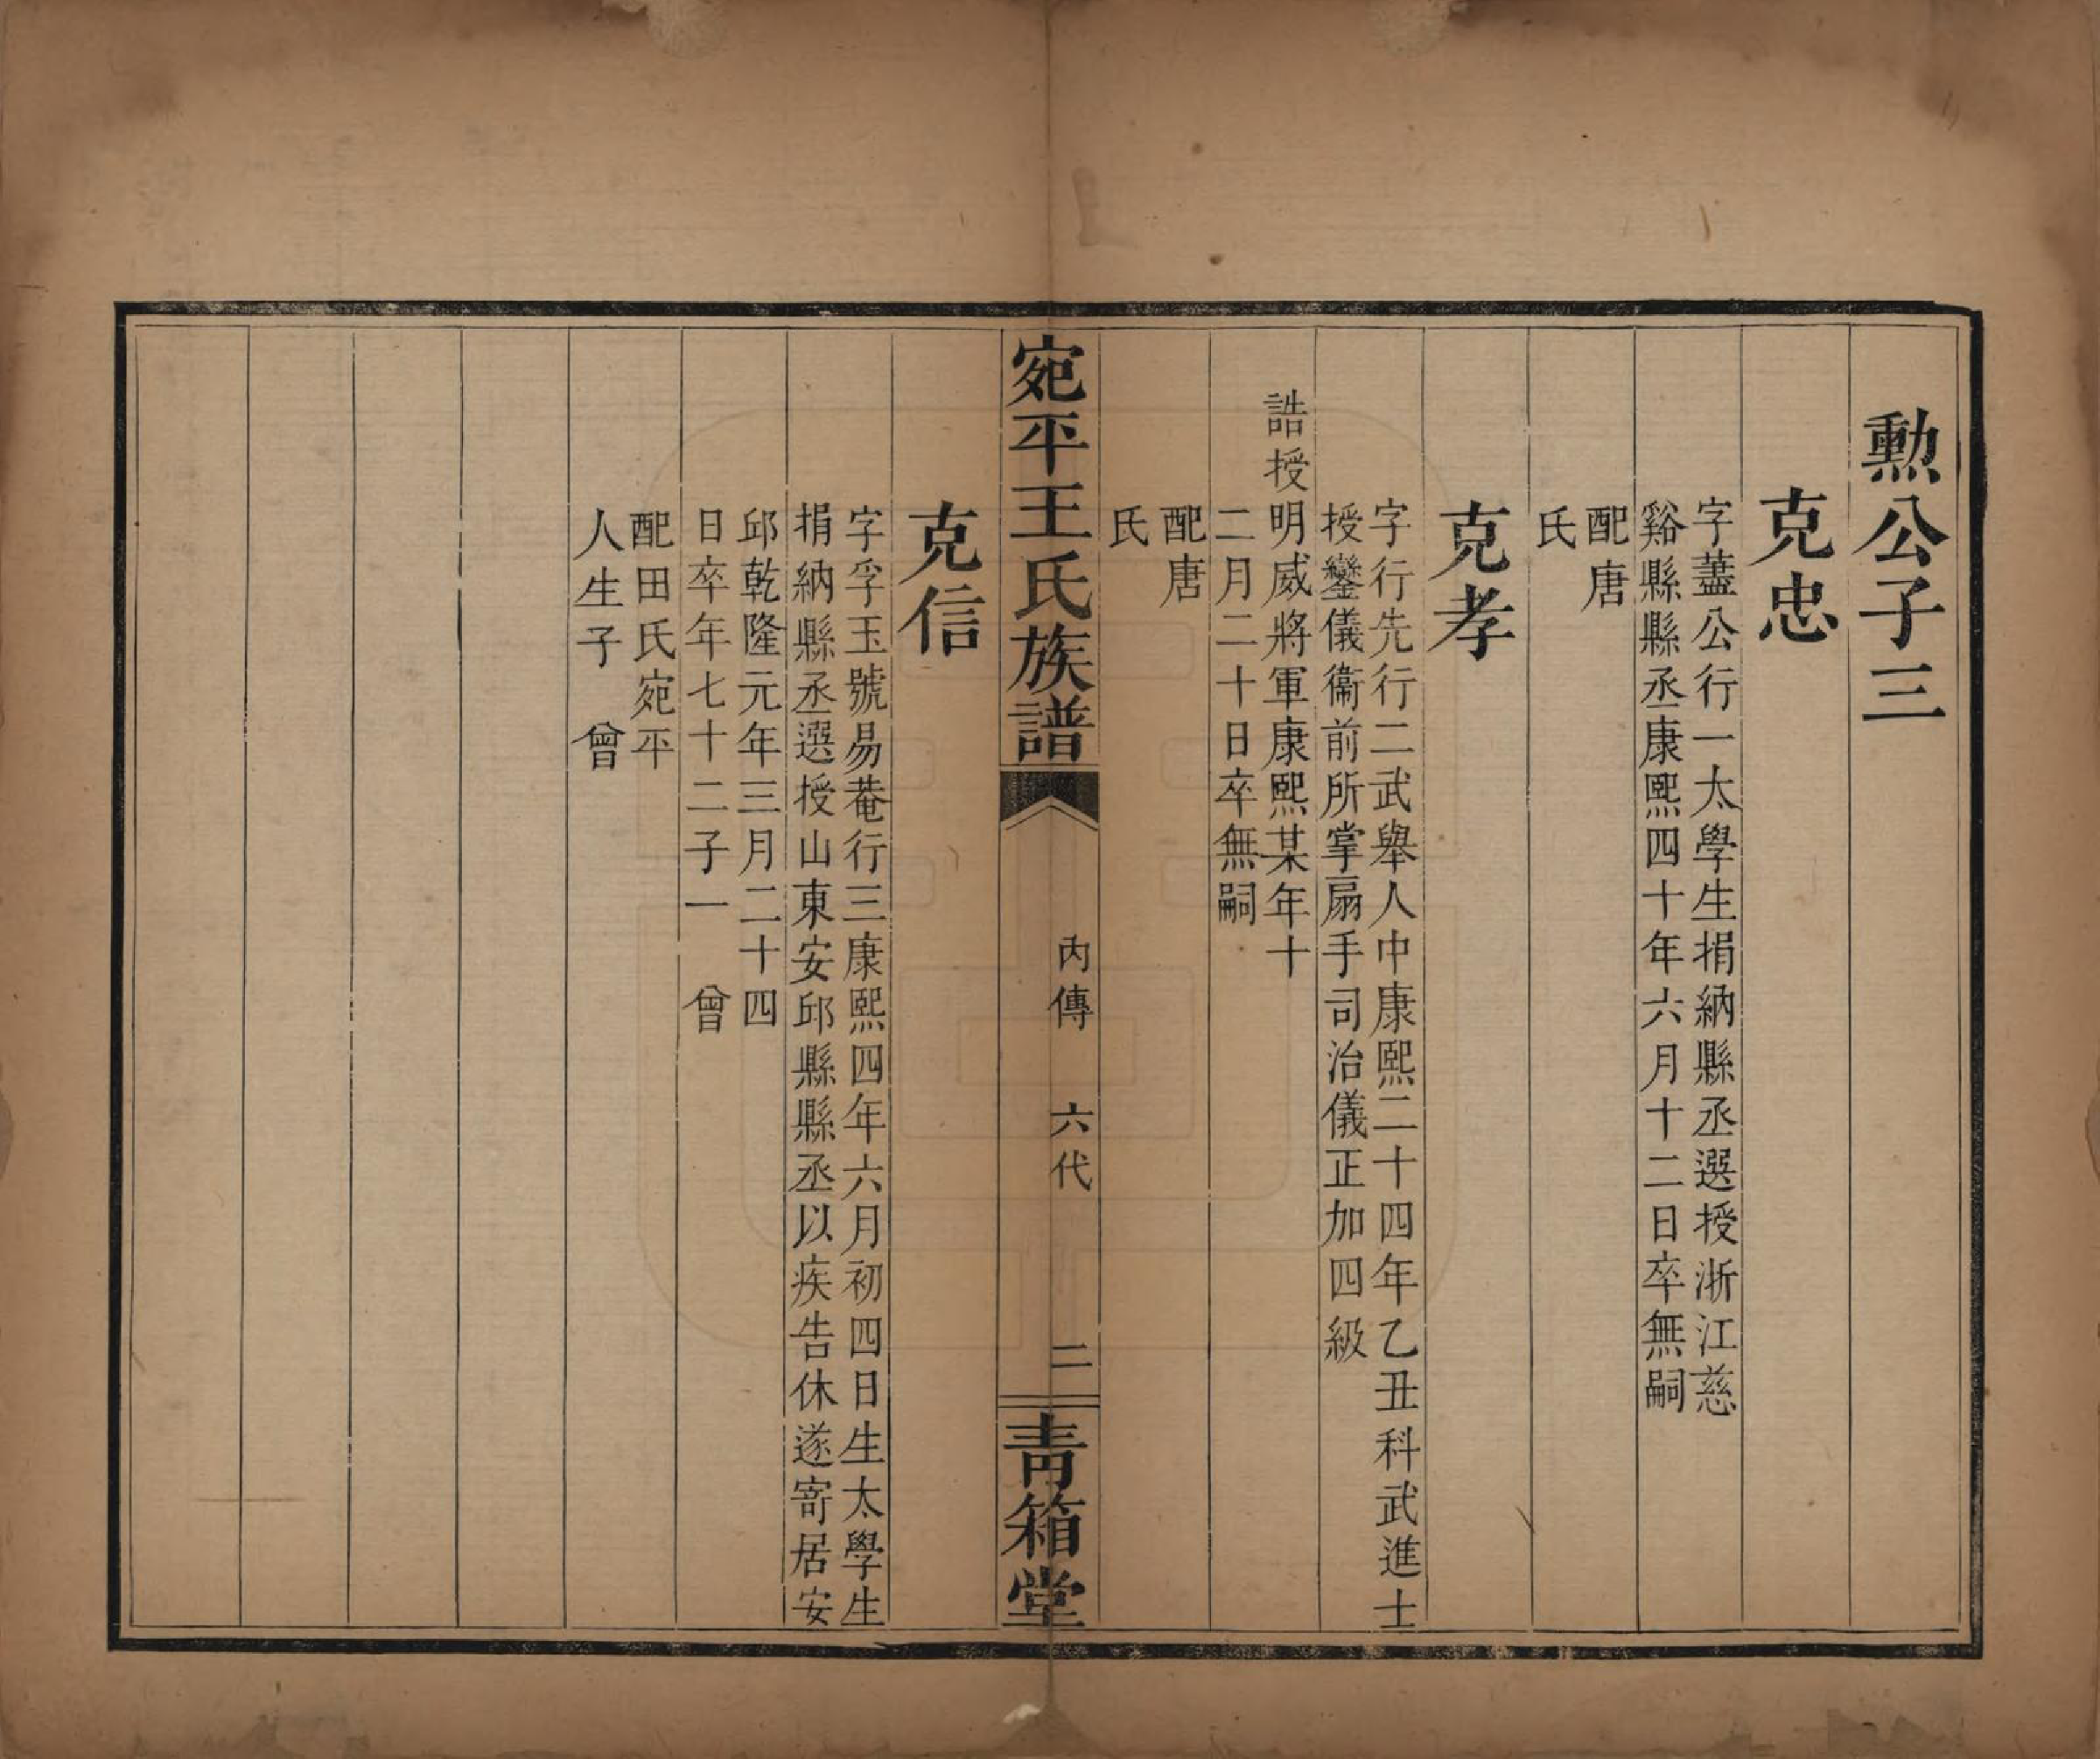 勲公子三
克忠
字藎公行一太學生捐納縣丞選授浙江慈
谿縣縣丞康熙四十年六月十二日卒無嗣
配唐
氏
克孝
字行先行二武舉人中康熙二十四年乙丑科武進士
授鑾儀衞前所掌扇手司治儀正加四級
誥授明威將軍康熙某年十
二月二十日卒無嗣
配唐
氏
宛平王氏族譜
內傳 六代 二
靑箱堂
克信
字孚玉號易菴行三康熙四年六月初四日生太學生
捐納縣丞選授山東安邱縣縣丞以疾告休遂寄居安
邱乾隆元年三月二十四
日卒年七十二子一 曾
配田氏宛平
人生子 曾